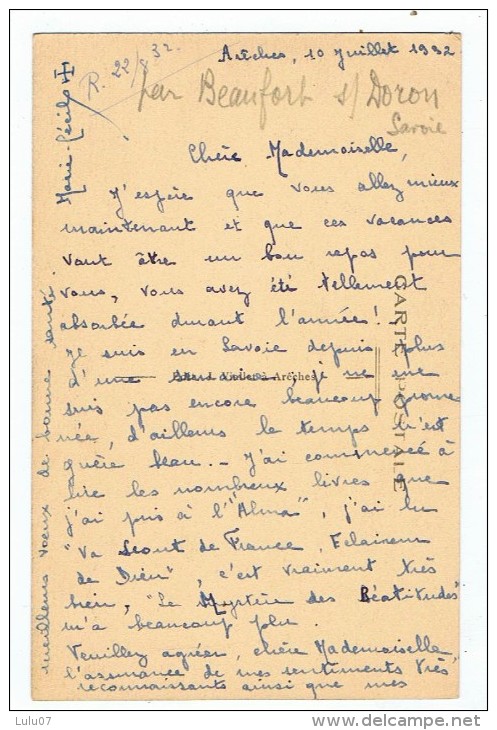 R. 22/8 32.
Arêches, 10 Juillet 1932
par Beaufort s/ Doron
Savoie
Chère Mademoiselle,
J'espère que vous allez mieux
maintenant et que ces vacances
vont être un bon repos pour
vous, vous avez été tellement
absorbée durant l'année!
Je suis en Savoie depuis plus
d'une semaine, je ne me
suis pas encore beaucoup prome
née, d'ailleurs le temps n'est
guère beau.- J'ai commencé à
lire les nombreux livres que
j'ai pris à l'"Alma", j'ai lu
"Va Scout de France, Eclaireur
de Dieu", c'est vraiment très
bien, "Le Mystère des Béatitudes"
m'a beaucoup plu.
Veuillez agréer, chère Mademoiselle,
l'assurance de mes sentiments très
reconnaissants ainsi que mes
meilleurs voeux de bonne santé.
Marie-Cécile
CARTE POSTALE
à Arêches
Lulu07
delcampe.net